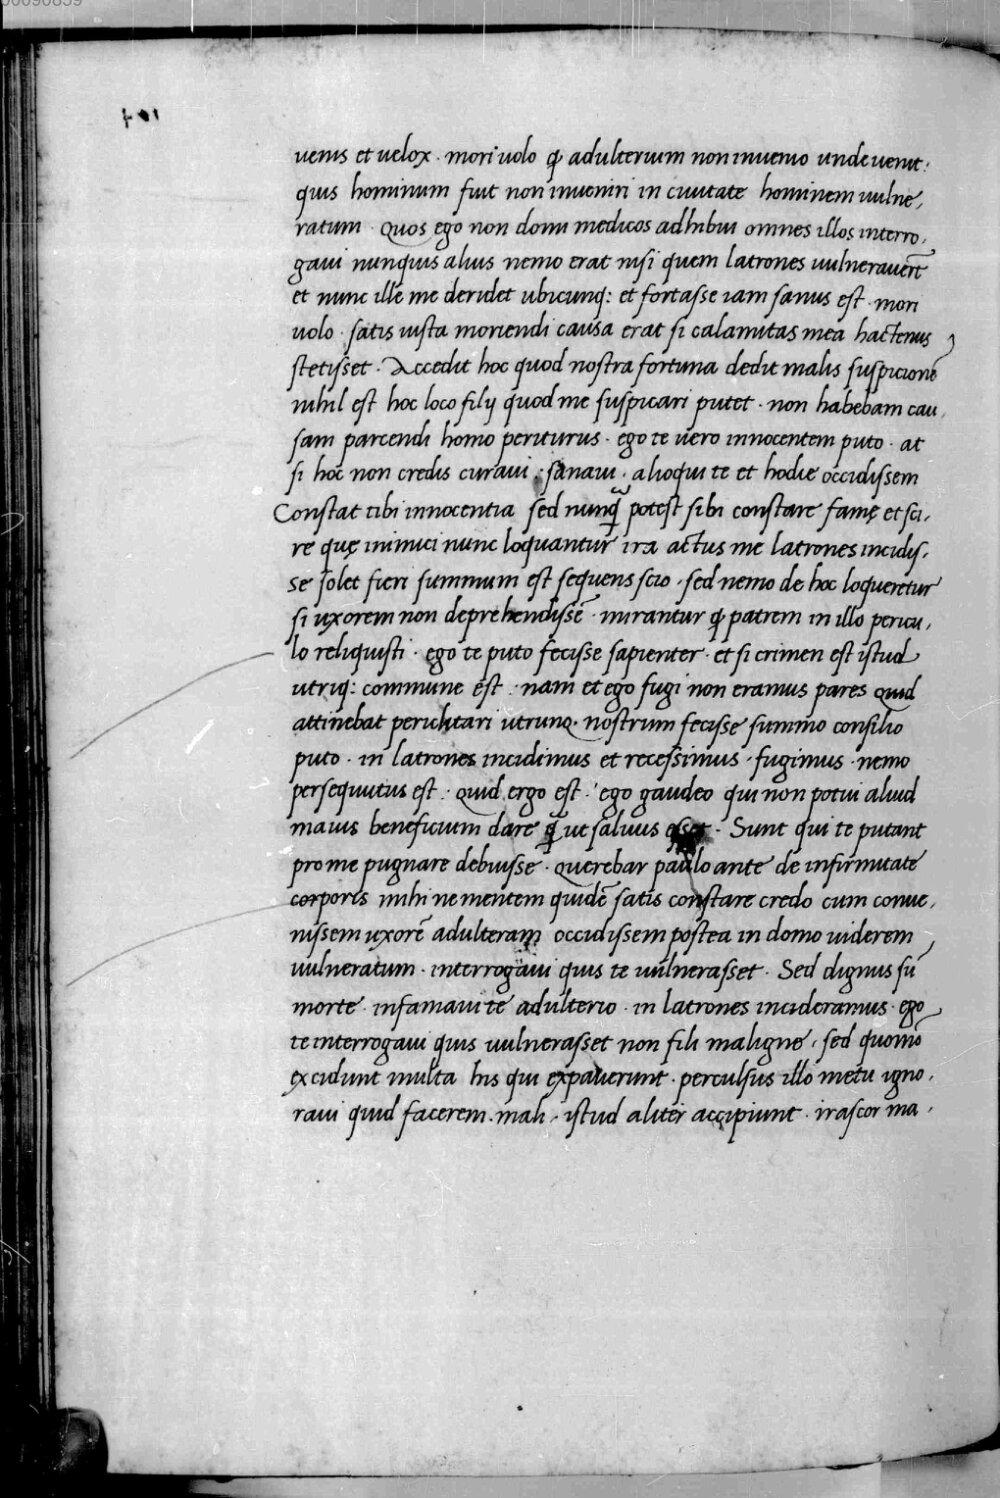 uenis et uelox · mori uolo ꝙ adulterium non inuenio unde uenit:
quis hominum fuit non inueniri in ciuitate hominem uulne,
ratum · Quos ego non domi medicos adhibui omnes illos interro,
gaui nunquis alius nemo erat nisi quem latrones uulnerauer̄t
et nunc ille me deridet ubicunq: et fortasse iam sanus est · mori
uolo · satis iusta moriendi causa erat si calamitas mea hactenus
stetisset · Accedit hoc quod nostra fortuna dedit malis suspicionē
nihil est hoc loco filij quod me suspicari putet · non habebam cau,
sam parcendi homo periturus · ego te uero innocentem puto · at
si hoc non credis curaui · sanaui · alioqui te et hodie occidissem
Constat tibi innocentia sed nunq̃ potest sibi constare famę et sci,
re quę inimici nunc loquantur ira actus me latrones incidis,
se solet fieri summum est sequens scio · sed nemo de hoc loqueretur
si uxorem non deprehendissē · mirantur ꝙ patrem in illo pericu,
lo reliquisti · ego te puto fecisse sapienter · et si crimen est istud
utriq: commune est · nam et ego fugi non eramus pares quid
attinebat periclitari utrunq· nostrum fecisse summo consilio
puto · in latrones incidimus et recessimus · fugimus · nemo
persequutus est · quid ergo est · ego gaudeo qui non potui aliud
maius beneficium dare q̃ ut saluus esset · Sunt qui te putant
pro me pugnare debuisse · querebar paulo ante de infirmitate
corporis mihi ne mentem quidē satis constare credo cum conue,
nissem uxorē adulteram occidissem postea in domo uiderem
uulneratum · interrogaui quis te uulnerasset · Sed dignus sū
morte · infamaui te adulterio · in latrones incideramus · ego
te interrogaui quis uulnerasset non fili maligne, sed quoniō
excidunt multa his qui expauerunt · perculsus illo metu igno,
raui quid facerem · mali · istud aliter accipiunt · irascor ma,